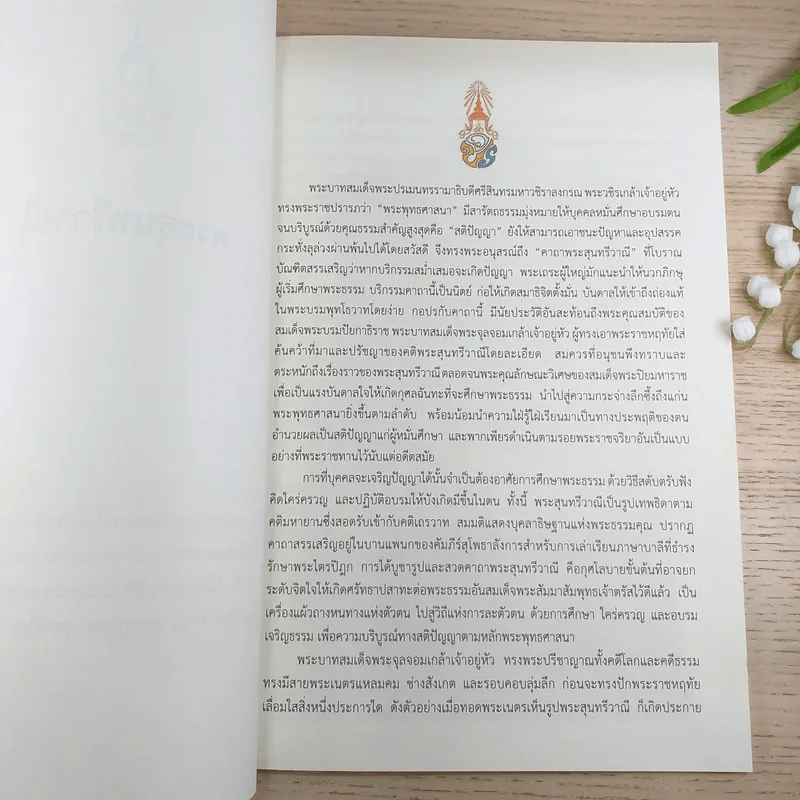 พระบาทสมเด็จพระปรเมนทรรามาธิบดีศรีสินทรมหาวชิราลงกรณ พระวชิรเกล้าเจ้าอยู่หัว
ทรงพระราชปรารภว่า “พระพุทธศาสนา” มีสารัตถธรรมมุ่งหมายให้บุคคลหมั่นศึกษาอบรมตน
จนบริบูรณ์ด้วยคุณธรรมสำคัญสูงสุดคือ “สติปัญญา” ยังให้สามารถเอาชนะปัญหาและอุปสรรค
กระทั่งลุล่วงผ่านพ้นไปได้โดยสวัสดี จึงทรงพระอนุสรณ์ถึง “คาถาพระสุนทรีวาณี” ที่โบราณ
บัณฑิตสรรเสริญว่าหากบริกรรมสม่ำเสมอจะเกิดปัญญา พระเถระผู้ใหญ่มักแนะนำให้นวกภิกษุ
ผู้เริ่มศึกษาพระธรรม บริกรรมคาถานี้เป็นนิตย์ ก่อให้เกิดสมาธิจิตตั้งมั่น บันดาลให้เข้าถึงถ่องแท้
ในพระบรมพุทโธวาทโดยง่าย กอปรกับคาถานี้ มีนัยประวัติอันสะท้อนถึงพระคุณสมบัติของ
สมเด็จพระบรมปัยกาธิราช พระบาทสมเด็จพระจุลจอมเกล้าเจ้าอยู่หัว ผู้ทรงเอาพระราชหฤทัยใส่
ค้นคว้าที่มาและปรัชญาของคติพระสุนทรีวาณีโดยละเอียด สมควรที่อนุชนพึงทราบและ
ตระหนักถึงเรื่องราวของพระสุนทรีวาณี ตลอดจนพระคุณลักษณะวิเศษของสมเด็จพระปิยมหาราช
เพื่อเป็นแรงบันดาลใจให้เกิดกุศลฉันทะที่จะศึกษาพระธรรม นำไปสู่ความกระจ่างลึกซึ้งถึงแก่น
พระพุทธศาสนายิ่งขึ้นตามลำดับ พร้อมน้อมนำความใฝ่รู้ใฝ่เรียนมาเป็นทางประพฤติของตน
อำนวยผลเป็นสติปัญญาแก่ผู้หมั่นศึกษา และพากเพียรดำเนินตามรอยพระราชจริยาอันเป็นแบบ
อย่างที่พระราชทานไว้นับแต่อดีตสมัย
การที่บุคคลจะเจริญปัญญาได้นั้นจำเป็นต้องอาศัยการศึกษาพระธรรม ด้วยวิธีสดับตรับฟัง
คิดใคร่ครวญ และปฏิบัติอบรมให้บังเกิดมีขึ้นในตน ทั้งนี้ พระสุนทรีวาณีเป็นรูปเทพธิดาตาม
คติมหายานซึ่งสอดรับเข้ากับคติเถรวาท สมมติแสดงบุคลาธิษฐานแห่งพระธรรมคุณ ปรากฏ
คาถาสรรเสริญอยู่ในบานแพนกของคัมภีร์สุโพธาลังการสำหรับการเล่าเรียนภาษาบาลีที่ธำรง
รักษาพระไตรปิฎก การได้บูชารูปและสวดคาถาพระสุนทรีวาณี คือกุศโลบายขั้นต้นที่อาจยก
ระดับจิตใจให้เกิดศรัทธาปสาทะต่อพระธรรมอันสมเด็จพระสัมมาสัมพุทธเจ้าตรัสไว้ดีแล้ว เป็น
เครื่องแผ้วถางหนทางแห่งตัวตน ไปสู่วิถีแห่งการละตัวตน ด้วยการศึกษา ใคร่ครวญ และอบรม
เจริญธรรม เพื่อความบริบูรณ์ทางสติปัญญาตามหลักพระพุทธศาสนา
พระบาทสมเด็จพระจุลจอมเกล้าเจ้าอยู่หัว ทรงพระปรีชาญาณทั้งคดีโลกและคดีธรรม
ทรงมีสายพระเนตรแหลมคม ช่างสังเกต และรอบคอบลุ่มลึก ก่อนจะทรงปักพระราชหฤทัย
เลื่อมใสสิ่งหนึ่งประการใด ดังตัวอย่างเมื่อทอดพระเนตรเห็นรูปพระสุนทรีวาณี ก็เกิดประกาย